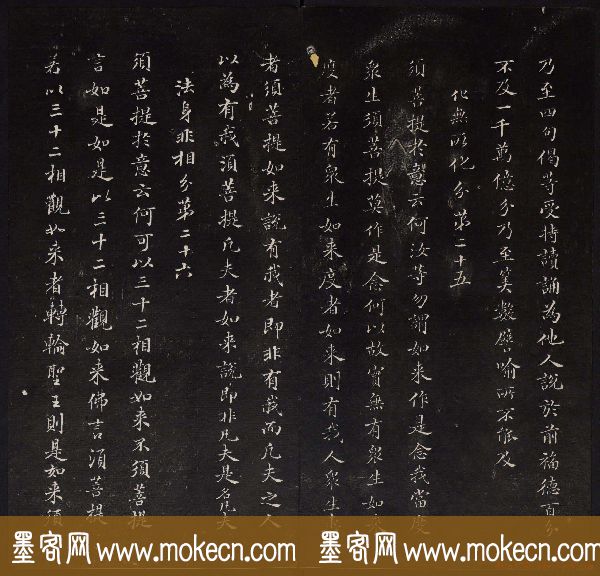 乃至四句偈等受持讀誦為他人說於前福德百分
不及一千萬億分乃至筭數譬喻所不能及
化無所化分第二十五
須菩提於意云何汝等勿謂如來作是念我當度
衆生須菩提莫作是念何以故實無有衆生如來
度者若有衆生如來度者如來則有我人衆生
者須菩提如來說有我者即非有我而凡夫之人
以為有我須菩提凡夫者如來說即非凡夫是名
法身非相分第二十六
須菩提於意云何可以三十二相觀如來不須菩提
言如是如是以三十二相觀如來佛言須菩提
若以三十二相觀如來者轉輪聖王則是如來須
墨客网 www.mokecn.com 墨客网 www.mokecn.com